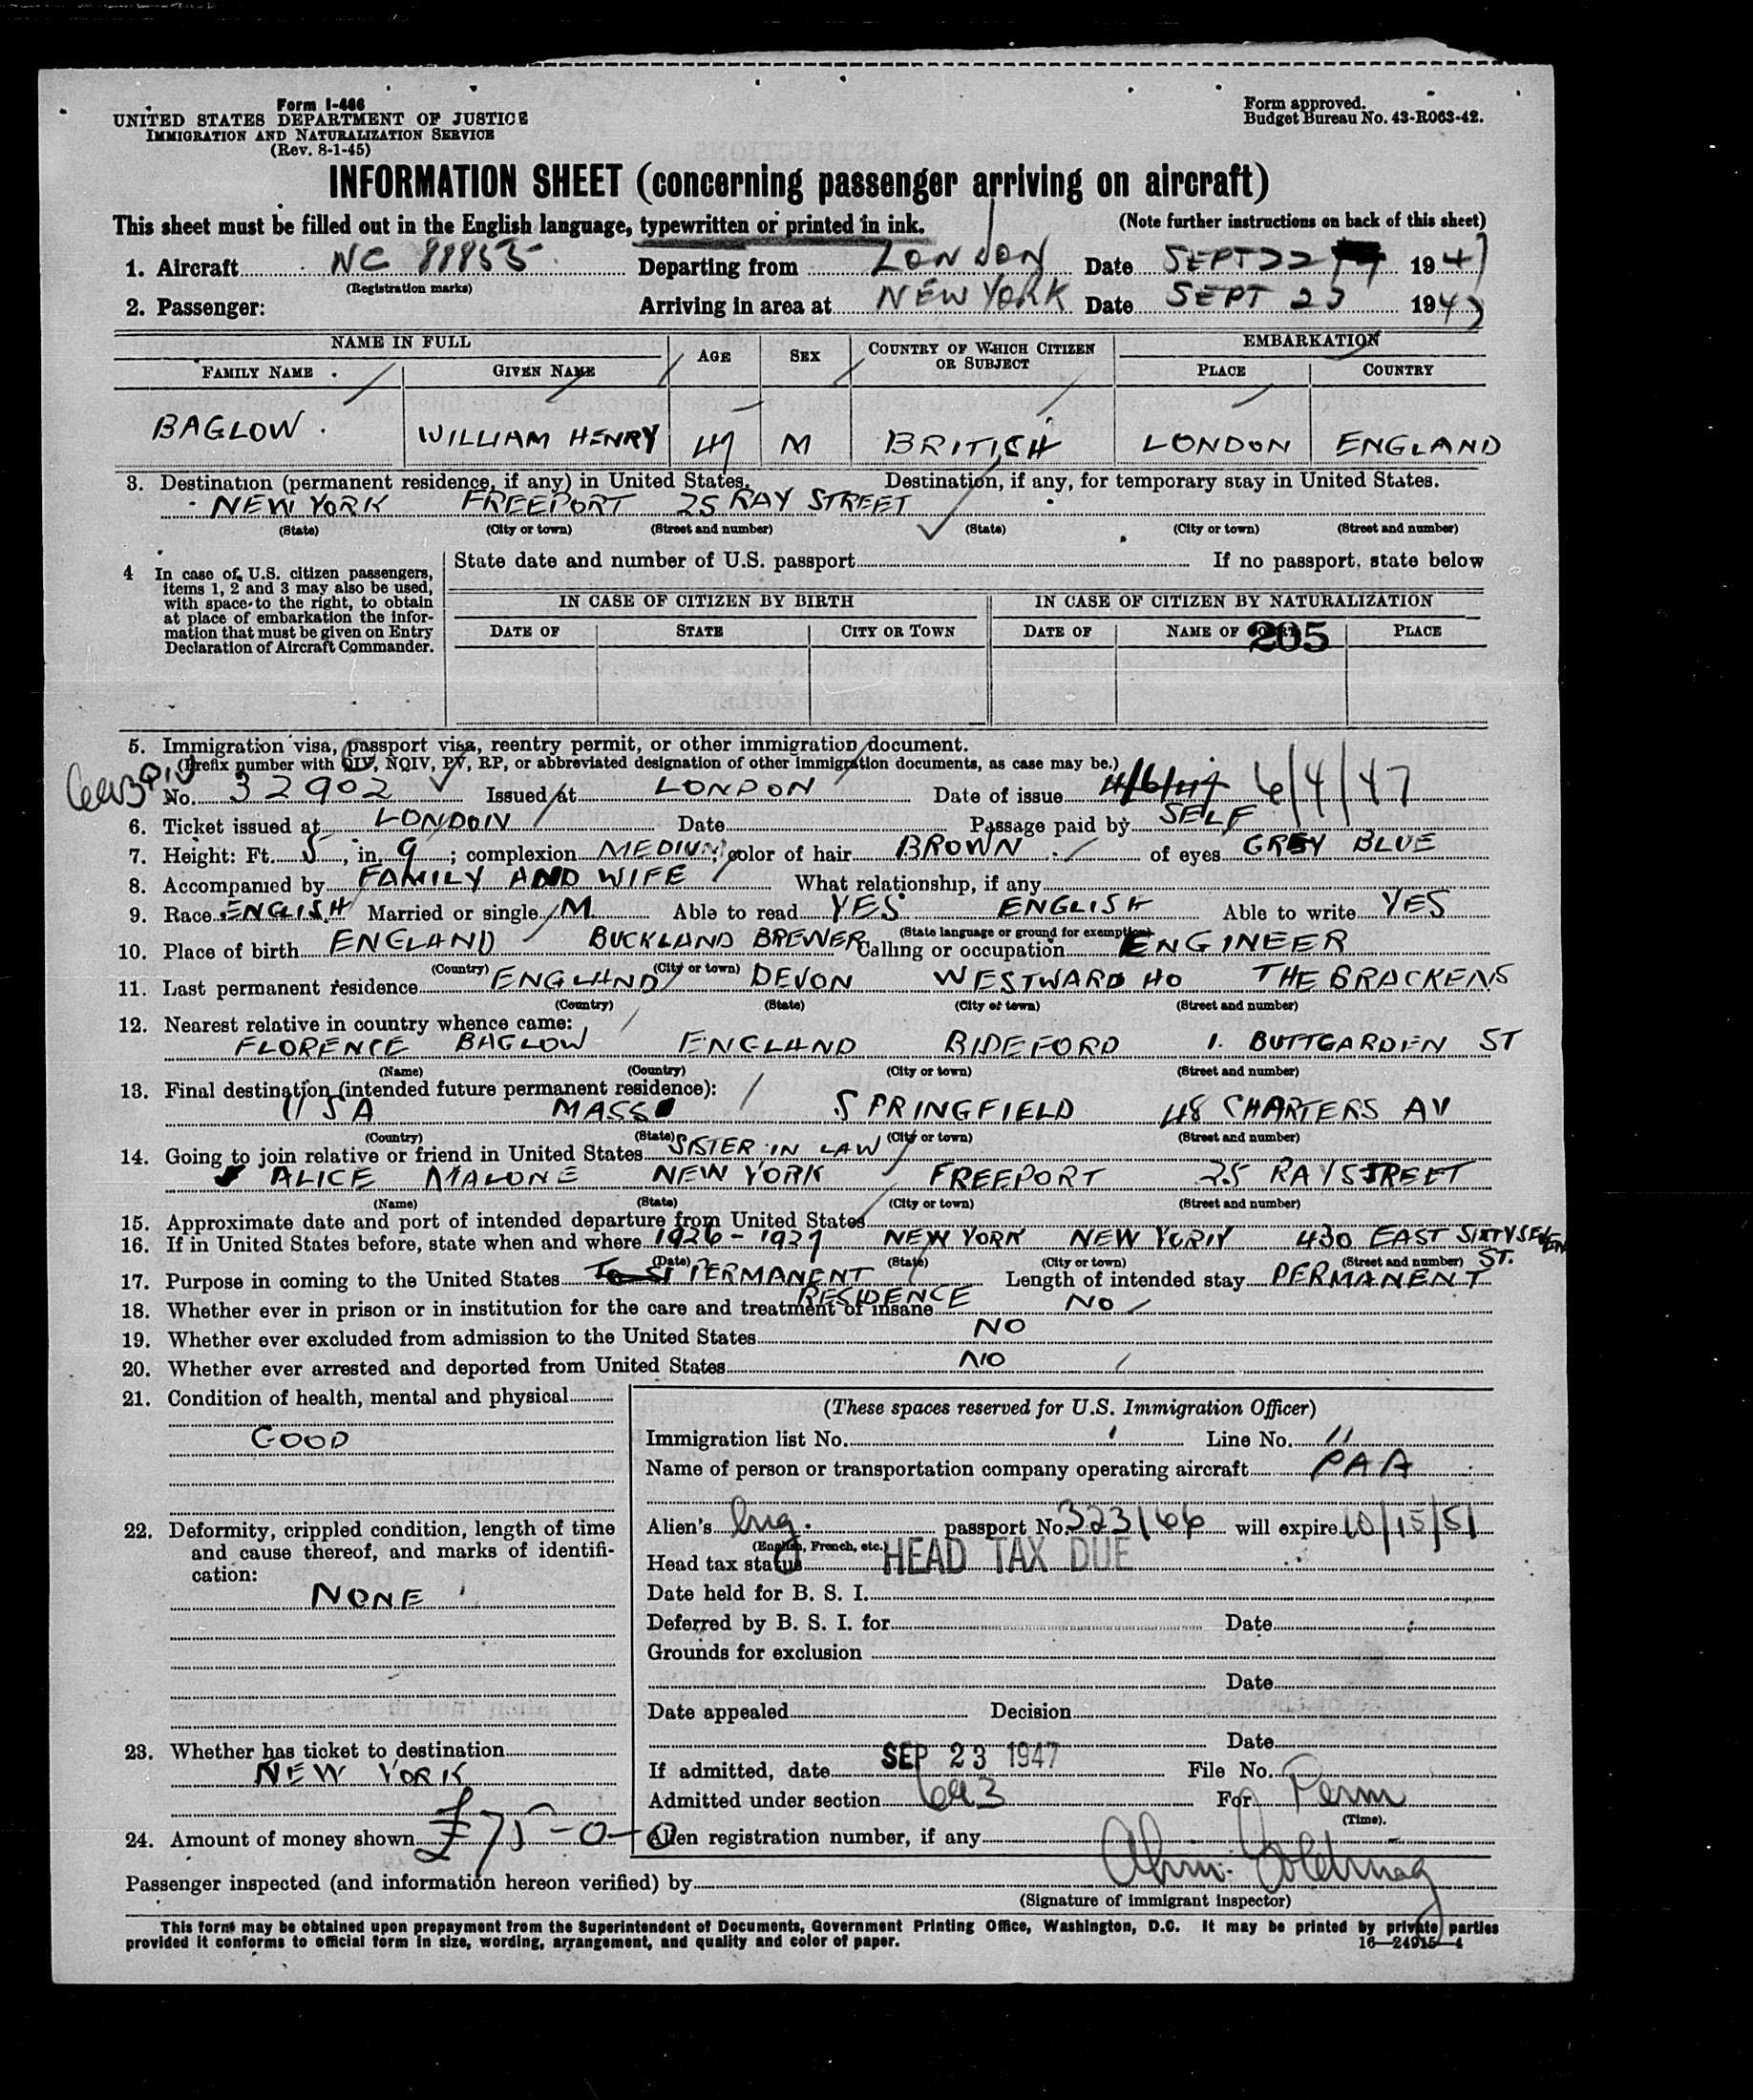 Form I-466
UNITED STATES DEPARTMENT OF JUSTICE
IMMIGRATION AND NATURALIZATION SERVICE
(Rev. 8-1-45)
Form approved.
Budget Bureau No. 43-R063-42.
INFORMATION SHEET (concerning passenger arriving on aircraft)
This sheet must be filled out in the English language, typewritten or printed in ink. (Note further instructions on back of this sheet)
1. Aircraft NC 88855 Departing from LONDON Date SEPT 22 1947
(Registration marks)
2. Passenger: Arriving in area at NEW YORK Date SEPT 23 1947
NAME IN FULL AGE SEX COUNTRY OF WHICH CITIZEN OR SUBJECT EMBARKATION
FAMILY NAME GIVEN NAME PLACE COUNTRY
BAGLOW WILLIAM HENRY 47 M BRITISH LONDON ENGLAND
3. Destination (permanent residence, if any) in United States. Destination, if any, for temporary stay in United States.
NEW YORK FREEPORT 25 RAY STREET
(State) (City or town) (Street and number) (State) (City or town) (Street and number)
4 In case of U.S. citizen passengers, items 1, 2 and 3 may also be used, with space to the right, to obtain at place of embarkation the information that must be given on Entry Declaration of Aircraft Commander.
State date and number of U.S. passport If no passport, state below
IN CASE OF CITIZEN BY BIRTH IN CASE OF CITIZEN BY NATURALIZATION
DATE OF STATE CITY OR TOWN DATE OF NAME OF 205 PLACE
5. Immigration visa, passport visa, reentry permit, or other immigration document.
(Prefix number with QIV, NQIV, PV, RP, or abbreviated designation of other immigration documents, as case may be.)
6a3 QIV No. 32902 Issued at LONDON Date of issue 6/4/47
6. Ticket issued at LONDON Date Passage paid by SELF
7. Height: Ft. 5, in. 9; complexion MEDIUM; color of hair BROWN of eyes GREY BLUE
8. Accompanied by FAMILY AND WIFE What relationship, if any
9. Race ENGLISH Married or single M Able to read YES ENGLISH Able to write YES
(State language or ground for exemption)
10. Place of birth ENGLAND BUCKLAND BREWER Calling or occupation ENGINEER
(Country) (City or town)
11. Last permanent residence ENGLAND DEVON WESTWARD HO THE BRACKENS
(Country) (State) (City or town) (Street and number)
12. Nearest relative in country whence came:
FLORENCE BAGLOW ENGLAND BIDEFORD 1. BUTTGARDEN ST
(Name) (Country) (City or town) (Street and number)
13. Final destination (intended future permanent residence):
USA MASS SPRINGFIELD 48 CHARTERS AV
(Country) (State) (City or town) (Street and number)
14. Going to join relative or friend in United States SISTER IN LAW
ALICE MALONE NEW YORK FREEPORT 25 RAY STREET
(Name) (State) (City or town) (Street and number)
15. Approximate date and port of intended departure from United States
16. If in United States before, state when and where 1926-1927 NEW YORK NEW YORK 430 EAST SIXTY SEVEN ST.
(Date) (State) (City or town) (Street and number)
17. Purpose in coming to the United States PERMANENT RESIDENCE Length of intended stay PERMANENT
18. Whether ever in prison or in institution for the care and treatment of insane NO
19. Whether ever excluded from admission to the United States NO
20. Whether ever arrested and deported from United States NO
21. Condition of health, mental and physical
GOOD
22. Deformity, crippled condition, length of time and cause thereof, and marks of identification:
NONE
23. Whether has ticket to destination
NEW YORK
24. Amount of money shown £75-0-0
(These spaces reserved for U.S. Immigration Officer)
Immigration list No. Line No. 11
Name of person or transportation company operating aircraft PAA
Alien's Eng. passport No. 323166 will expire 10/15/51
(English, French, etc.)
Head tax status HEAD TAX DUE
Date held for B. S. I.
Deferred by B. S. I. for Date
Grounds for exclusion
Date
Date appealed Decision
Date
If admitted, date SEP 23 1947 File No.
Admitted under section 6a3 For Perm
(Time).
Alien registration number, if any
Passenger inspected (and information hereon verified) by
(Signature of immigrant inspector)
This form may be obtained upon prepayment from the Superintendent of Documents, Government Printing Office, Washington, D.C. It may be printed by private parties
provided it conforms to official form in size, wording, arrangement, and quality and color of paper. 16—24915-4